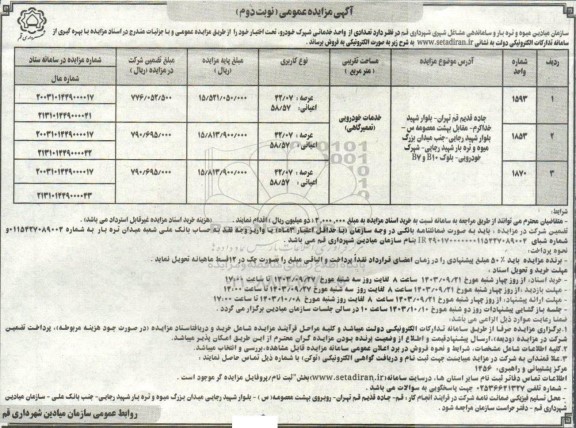 آگهی مزایده عمومی (نوبت دوم)
سازمان میادین میوه و تره بار و ساماندهی مشاغل شهری شهرداری قم در نظر دارد تعدادی از واحد خدماتی شهرک خودرو، تحت اختیار خود را از طریق مزایده عمومی و با جزئیات مندرج در اسناد مزایده با بهره گیری از
سامانه تدارکات الکترونیکی دولت به نشانی www.setadiran.ir به شرح زیر به صورت الکترونیکی به فروش برساند.
ردیف
شماره واحد
آدرس موضوع مزایده
مساحت تقریبی (متر مربع)
نوع کاربری
مبلغ پایه مزایده (ریال)
مبلغ تضمین شرکت در مزایده (ریال)
شماره مزایده در سامانه ستاد
شماره مال
۱
۱۵۹۳
عرصه: ۴۲/۰۷
اعیانی: ۵۸/۵۷
۱۵/۵۲۱/۰۵۰/۰۰۰
۷۷۶/۰۵۲/۵۰۰
۲۰۰۳۱۰۱۴۴۹۰۰۰۰۱۷
۲۱۳۱۰۱۴۴۹۰۰۰۰۴۱
۲
۱۸۵۳
جاده قدیم قم تهران- بلوار شهید خداکرم- مقابل بهشت معصومه س- بلوار شهید رجایی- جنب میدان بزرگ میوه و تره بار شهید رجایی- شهرک خودرویی- بلوک B۱۰ و B۷
خدمات خودرویی (تعمیرگاهی)
عرصه: ۴۲/۰۷
اعیانی: ۵۸/۵۷
۱۵/۸۱۳/۹۰۰/۰۰۰
۷۹۰/۶۹۵/۰۰۰
۲۰۰۳۱۰۱۴۴۹۰۰۰۰۱۷
۲۱۳۱۰۱۴۴۹۰۰۰۰۴۲
۳
۱۸۷۰
عرصه: ۴۲/۰۷
اعیانی: ۵۸/۵۷
۱۵/۸۱۳/۹۰۰/۰۰۰
۷۹۰/۶۹۵/۰۰۰
۲۰۰۳۱۰۱۴۴۹۰۰۰۰۱۷
۲۱۳۱۰۱۴۴۹۰۰۰۰۴۳
شرایط:
- متقاضیان محترم می توانند از طریق مراجعه به سامانه نسبت به خرید اسناد مزایده به مبلغ ۲,۰۰۰,۰۰۰ (دو میلیون ریال) اقدام نمایند. (هزینه خرید اسناد مزایده غیرقابل استرداد می باشد.)
تضمین شرکت در مزایده: باید به صورت ضمانتنامه بانکی در وجه سازمان (با حداقل اعتبار ۳ماه) یا واریز وجه نقد به حساب بانک ملی شعبه میدان تره بار به شماره
شماره شبای بنام سازمان میادین شهرداری قم می باشد.
نحوه پرداخت:
- برنده مزایده باید ۵۰٪ مبلغ پیشنهادی را در زمان امضای قرارداد نقداً پرداخت و الباقی مبلغ را بصورت چک در ۱۲ قسط ماهیانه تحویل نماید.
مهلت خرید و تحویل اسناد:
- خرید اسناد: از روز چهار شنبه مورخ ۱۴۰۳/۰۹/۲۱ ساعت ۸ لغایت روز سه شنبه مورخ ۱۴۰۳/۰۹/۲۷ تا ساعت ۱۷:۰۰
- مهلت بازدید: از روز چهار شنبه مورخ ۱۴۰۳/۰۹/۲۱ ساعت ۸ لغایت روز سه شنبه مورخ ۱۴۰۳/۰۹/۲۷ تا ساعت ۱۴:۰۰
- مهلت ارائه پیشنهاد: از روز چهار شنبه مورخ ۱۴۰۳/۰۹/۲۱ ساعت ۸ لغایت روز شنبه مورخ ۱۴۰۳/۱۰/۰۸ ساعت ۱۷:۰۰
- جلسه باز گشایی پیشنهادات روز دو شنبه مورخ ۱۴۰۳/۱۰/۱۰ ساعت ۱۰ در سالن جلسات سازمان میادین برگزار می گردد.
ضمنا رعایت موارد ذیل الزامی می باشد:
۱. برگزاری مزایده صرفا از طریق سامانه تدارکات الکترونیکی دولت میباشد و کلیه مراحل فرآیند مزایده شامل خرید و دریافت اسناد مزایده (در صورت وجود هزینه مربوطه)، پرداخت تضمین
شرکت در مزایده (ودیعه)، ارسال پیشنهاد قیمت و اطلاع از وضعیت برنده بودن مزایده گران محترم از این طریق امکان پذیر میباشد.
۲. کلیه اطلاعات شامل مشخصات، شرایط و نحوه فروش در برد اعلان عمومی سامانه مزایده قابل مشاهده، بررسی و انتخاب میباشد.
۳. علاقمندان به شرکت در مزایده میبایست جهت ثبت نام و دریافت گواهی الکترونیکی (توکن) با شماره ذیل تماس حاصل نمایند:
مرکز پشتیبانی و راهبری: ۱۴۵۶
اطلاعات تماس دفاتر ثبت نام سایر استان ها، در سایت سامانه (www.setadiran.ir) بخش "ثبت نام/پروفایل مزایده گر موجود است.
شماره تلفن ۰۲۵۳۶۶۴۱۳۲۷ جهت پاسخگویی به سوالات می باشد.
- محل تسلیم فیزیکی ضمانت نامه شرکت در فرایند انجام کار: قم- جاده قدیم قم تهران- روبروی بهشت معصومه: س- بلوار شهید رجایی میدان بزرگ میوه و تره بار شهید رجایی- جنب بانک ملی- سازمان میادین
شهرداری قم- دفتر حراست سازمان مراجعه شود.
روابط عمومی سازمان میادین شهرداری قم